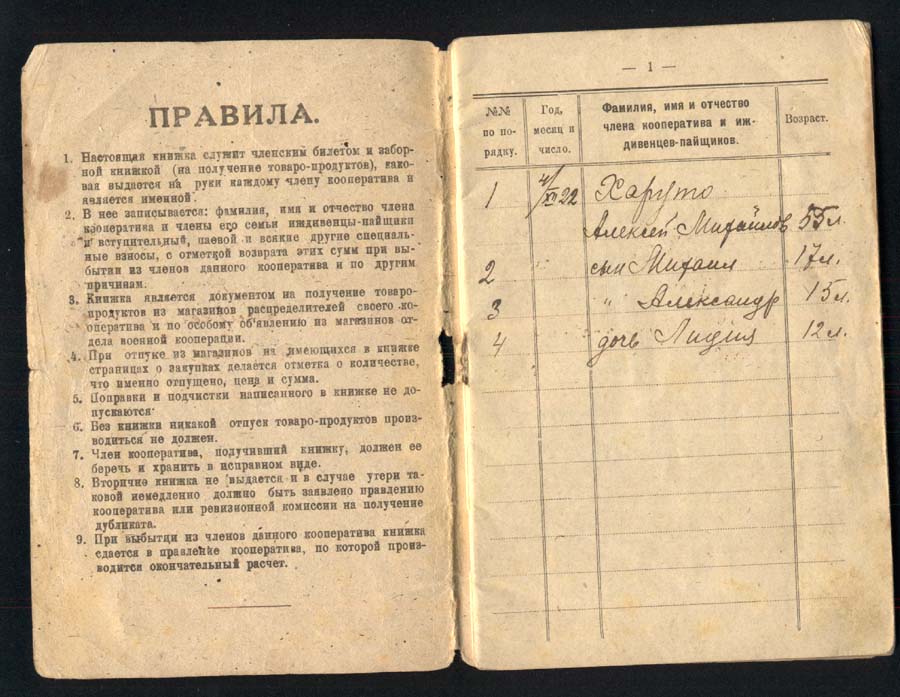 ПРАВИЛА.
1. Настоящая книжка служит членским билетом и забор-
ной книжкой (на получение товаро-продуктов), како-
вая выдается на руки каждому члену кооператива и
является именной.
2. В нее записывается: фамилия, имя и отчество члена
кооператива и члены его семьи иждивенцы-пайщики
и вступительный, паевой и всякие другие специаль-
ные взносы, с отметкой возврата этих сумм при вы-
бытии из членов данного кооператива и по другим
причинам.
3. Книжка является документом на получение товаро-
продуктов из магазинов распределителей своего ко-
оператива и по особому об'явлению из магазинов от-
дела военной кооперации.
4. При отпуске из магазинов на имеющихся в книжке
страницах о закупках делается отметка о количестве,
что именно отпущено, цена и сумма.
5. Поправки и подчистки написанного в книжке не до-
пускаются.
6. Без книжки никакой отпуск товаро-продуктов произ-
водиться не должен.
7. Член кооператива, получивший книжку, должен ее
беречь и хранить в исправном виде.
8. Вторично книжка не выдается и в случае утери та-
ковой немедленно должно быть заявлено правлению
кооператива или ревизионной комиссии на получение
дубликата.
9. При выбытии из членов данного кооператива книжка
сдается в правление кооператива, по которой произ-
водится окончательный расчет.
— 1 —
№№
по по-
рядку.
Год,
месяц и
число.
Фамилия, имя и отчество
члена кооператива и иж-
дивенцев-пайщиков.
Возраст.
1 4/XI 22 Харуто
Алексей Михайлов 55 л.
2 " сын Михаил 17 л.
3 " " Александр 15 л.
4 " дочь Лидия 12 л.